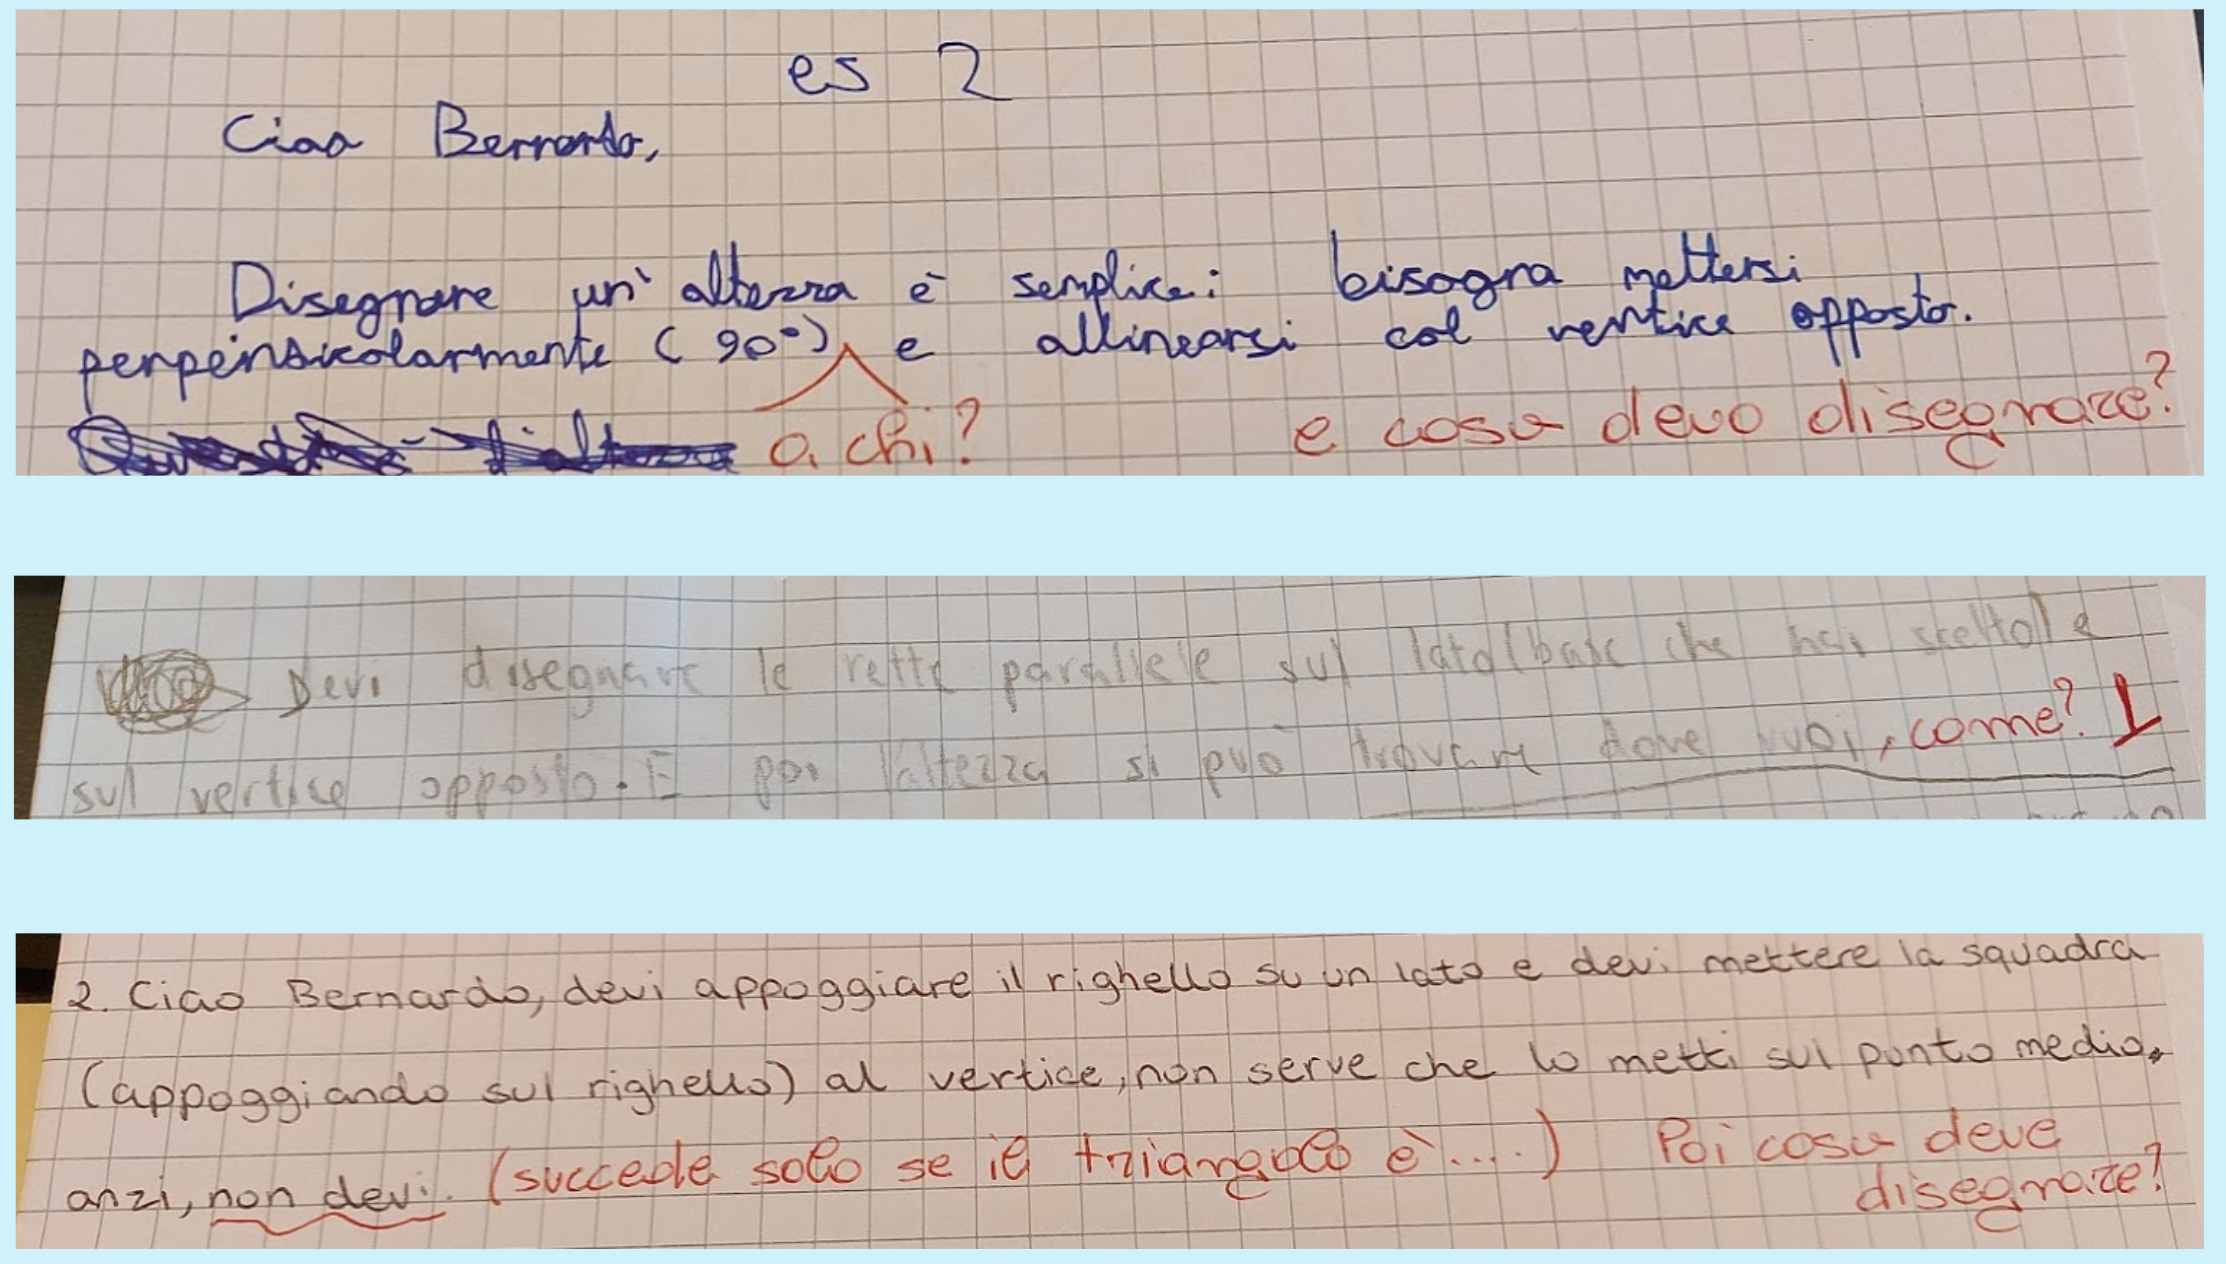 es 2
Ciao Bernardo,
Disegnare un' altezza è semplice: bisogna mettersi
perpendicolarmente (90°) e allinearsi col vertice opposto.
a chi? e cosa devo disegnare?
Devi disegnare le rette parallele sul lato (base che hai scelto) e
sul vertice opposto. E poi l'altezza si può trovare dove vuoi, come?
2. Ciao Bernardo, devi appoggiare il righello su un lato e devi mettere la squadra
(appoggiando sul righello) al vertice, non serve che lo metti sul punto medio,
anzi, non devi. (succede solo se il triangolo è....) Poi cosa deve
disegnare?